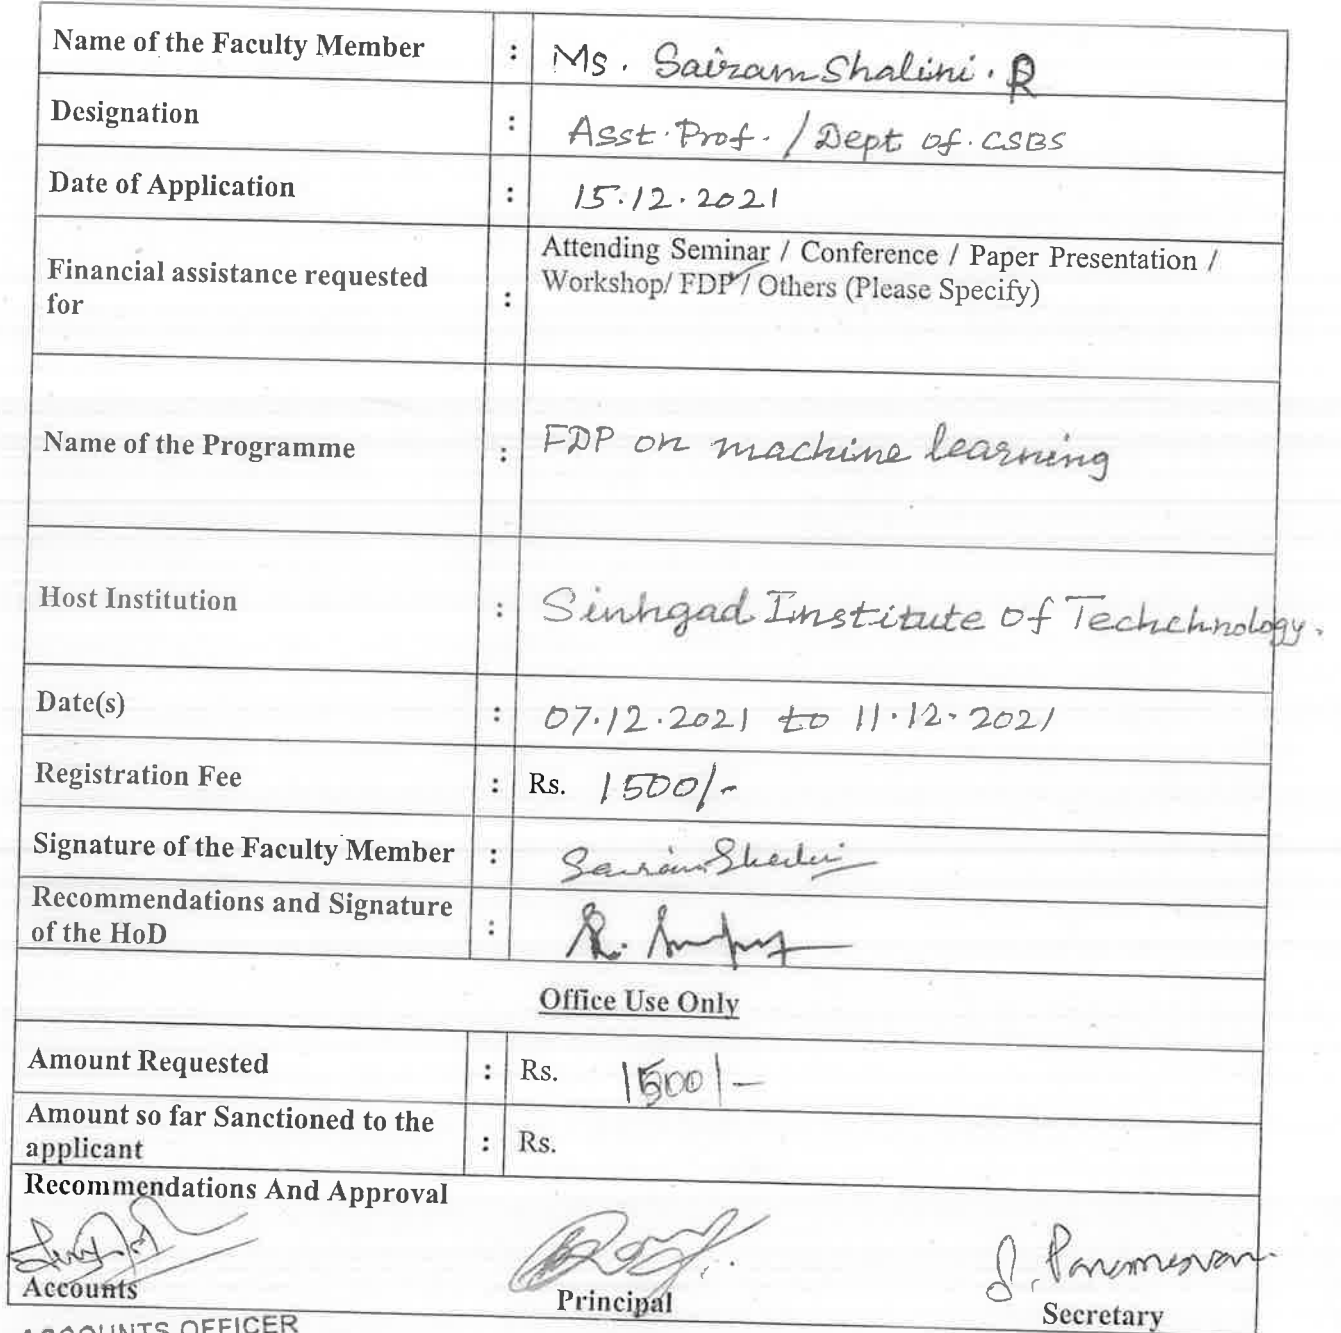 Name of the Faculty Member : Ms. Sairam Shalini. R
Designation : Asst. Prof. / Dept of. CSBS
Date of Application : 15.12.2021
Attending Seminar / Conference / Paper Presentation /
Financial assistance requested for : Workshop/ FDP / Others (Please Specify)
Name of the Programme : FDP on machine learning
Host Institution : Sinhgad Institute of Techchnology.
Date(s) : 07.12.2021 to 11.12.2021
Registration Fee : Rs. 1500/-
Signature of the Faculty Member : Sairam Shalini
Recommendations and Signature
of the HoD :
Office Use Only
Amount Requested : Rs. 1500/-
Amount so far Sanctioned to the
applicant : Rs.
Recommendations And Approval
Accounts Principal Secretary
ACCOUNTS OFFICER